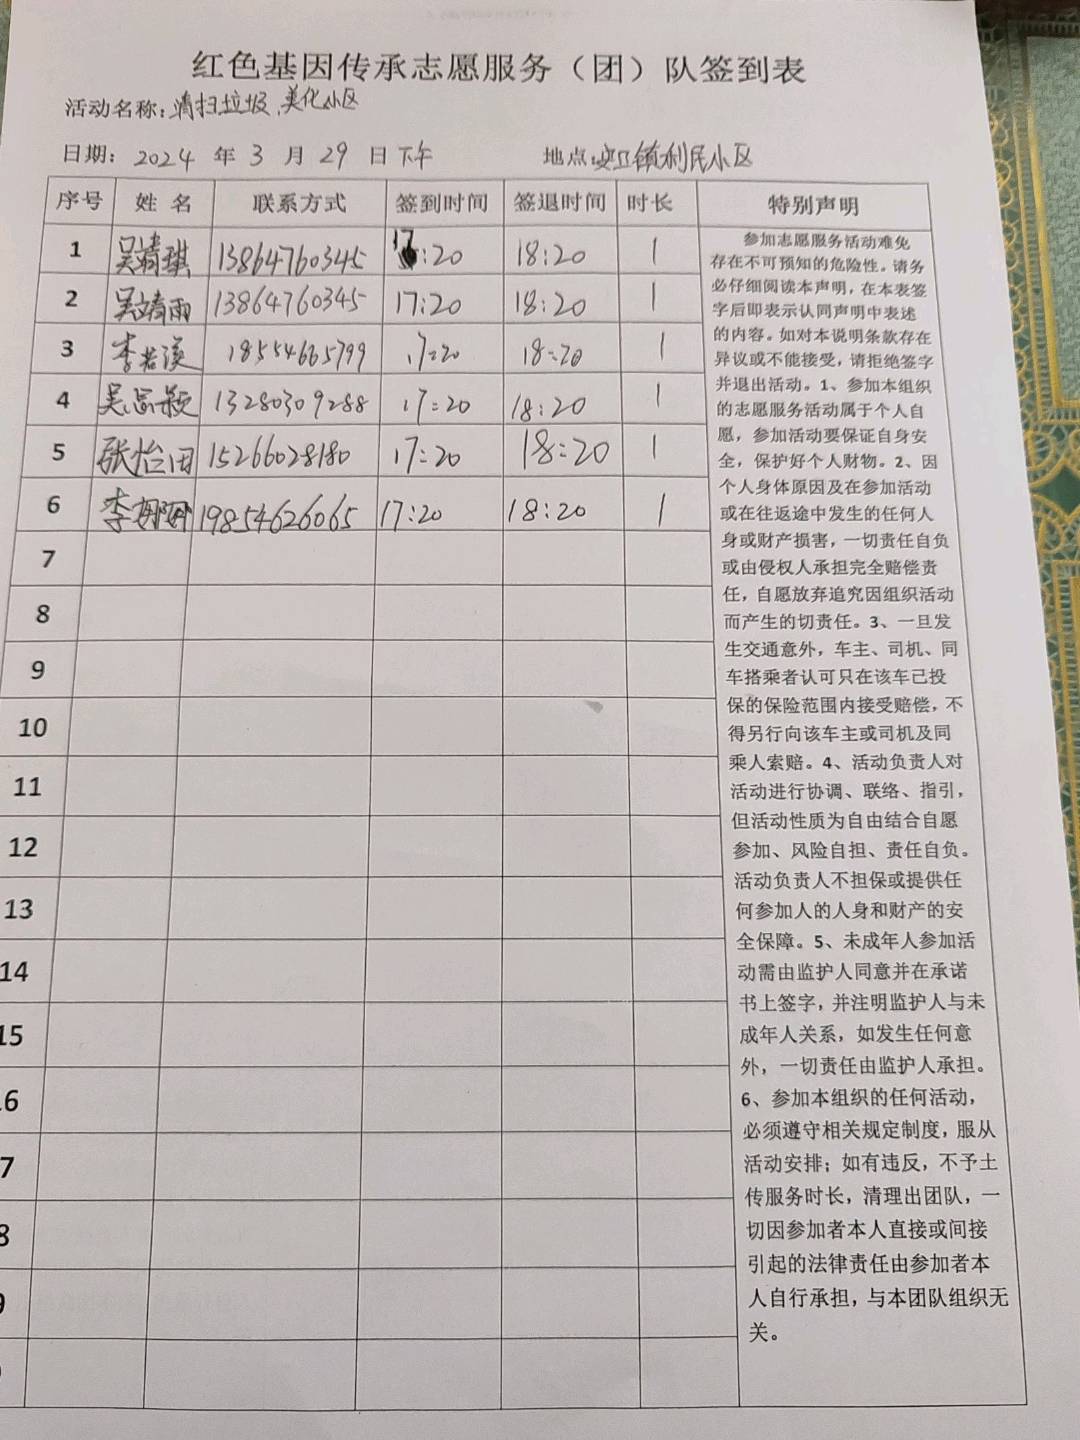 红色基因传承志愿服务（团）队签到表
活动名称：清扫垃圾，美化小区
日期：2024 年 3 月 29 日下午 地点：安丘镇利民小区
序号 姓 名 联系方式 签到时间 签退时间 时长 特别声明
1 吴靖琪 13864760345 17:20 18:20 1
2 吴靖雨 13864760345 17:20 18:20 1
3 李若溪 18554665799 17:20 18:20 1
4 吴思颖 13280309288 17:20 18:20 1
5 张怡田 15266028180 17:20 18:20 1
6 李 19854626065 17:20 18:20 1
7
8
9
10
11
12
13
14
15
.6
7
8
9
参加志愿服务活动难免
存在不可预知的危险性。请务
必仔细阅读本声明，在本表签
字后即表示认同声明中表述
的内容。如对本说明条款存在
异议或不能接受，请拒绝签字
并退出活动。1、参加本组织
的志愿服务活动属于个人自
愿，参加活动要保证自身安
全，保护好个人财物。2、因
个人身体原因及在参加活动
或在往返途中发生的任何人
身或财产损害，一切责任自负
或由侵权人承担完全赔偿责
任，自愿放弃追究因组织活动
而产生的切责任。3、一旦发
生交通意外，车主、司机、同
车搭乘者认可只在该车已投
保的保险范围内接受赔偿，不
得另行向该车主或司机及同
乘人索赔。4、活动负责人对
活动进行协调、联络、指引，
但活动性质为自由结合自愿
参加、风险自担、责任自负。
活动负责人不担保或提供任
何参加人的人身和财产的安
全保障。5、未成年人参加活
动需由监护人同意并在承诺
书上签字，并注明监护人与未
成年人关系，如发生任何意
外，一切责任由监护人承担。
6、参加本组织的任何活动，
必须遵守相关规定制度，服从
活动安排；如有违反，不予土
传服务时长，清理出团队，一
切因参加者本人直接或间接
引起的法律责任由参加者本
人自行承担，与本团队组织无
关。